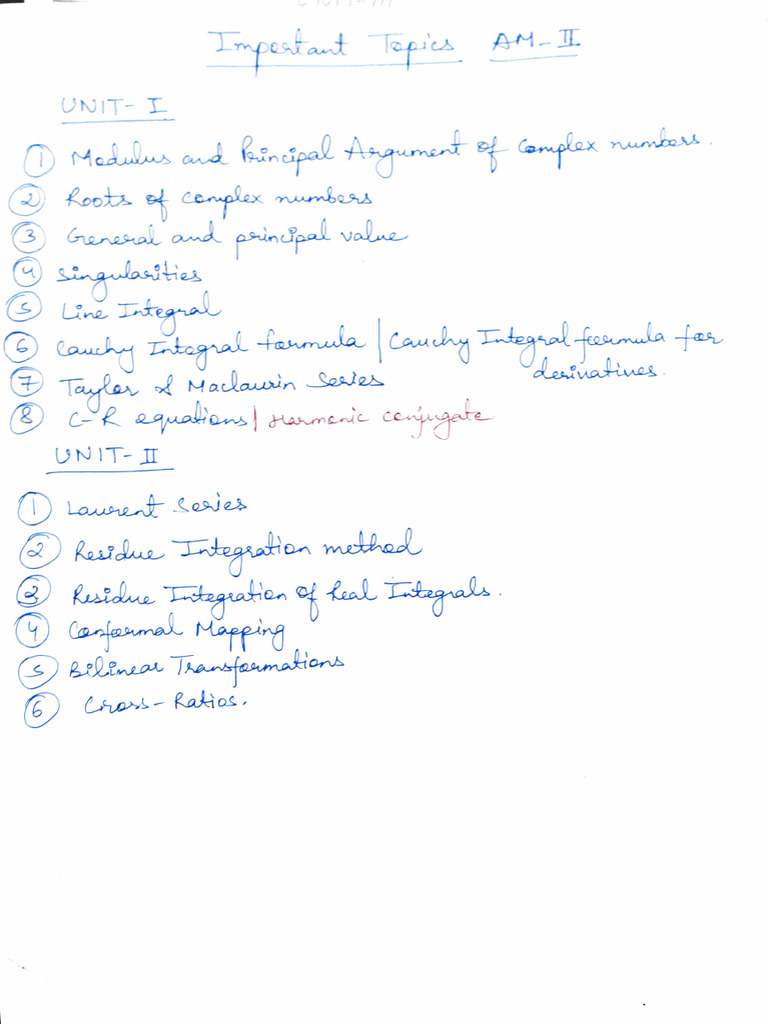 Important Topics AM-II
UNIT-I
① Modulus and Principal Argument of complex numbers.
② Roots of complex numbers
③ General and principal value
④ Singularities
⑤ Line Integral
⑥ Cauchy Integral formula | Cauchy Integral formula for
derivatives.
⑦ Taylor & Maclaurin Series
⑧ C-R equations | Harmonic conjugate
UNIT-II
① Laurent Series
② Residue Integration method
③ Residue Integration of Real Integrals.
④ Conformal Mapping
⑤ Bilinear Transformations
⑥ Cross-Ratios.